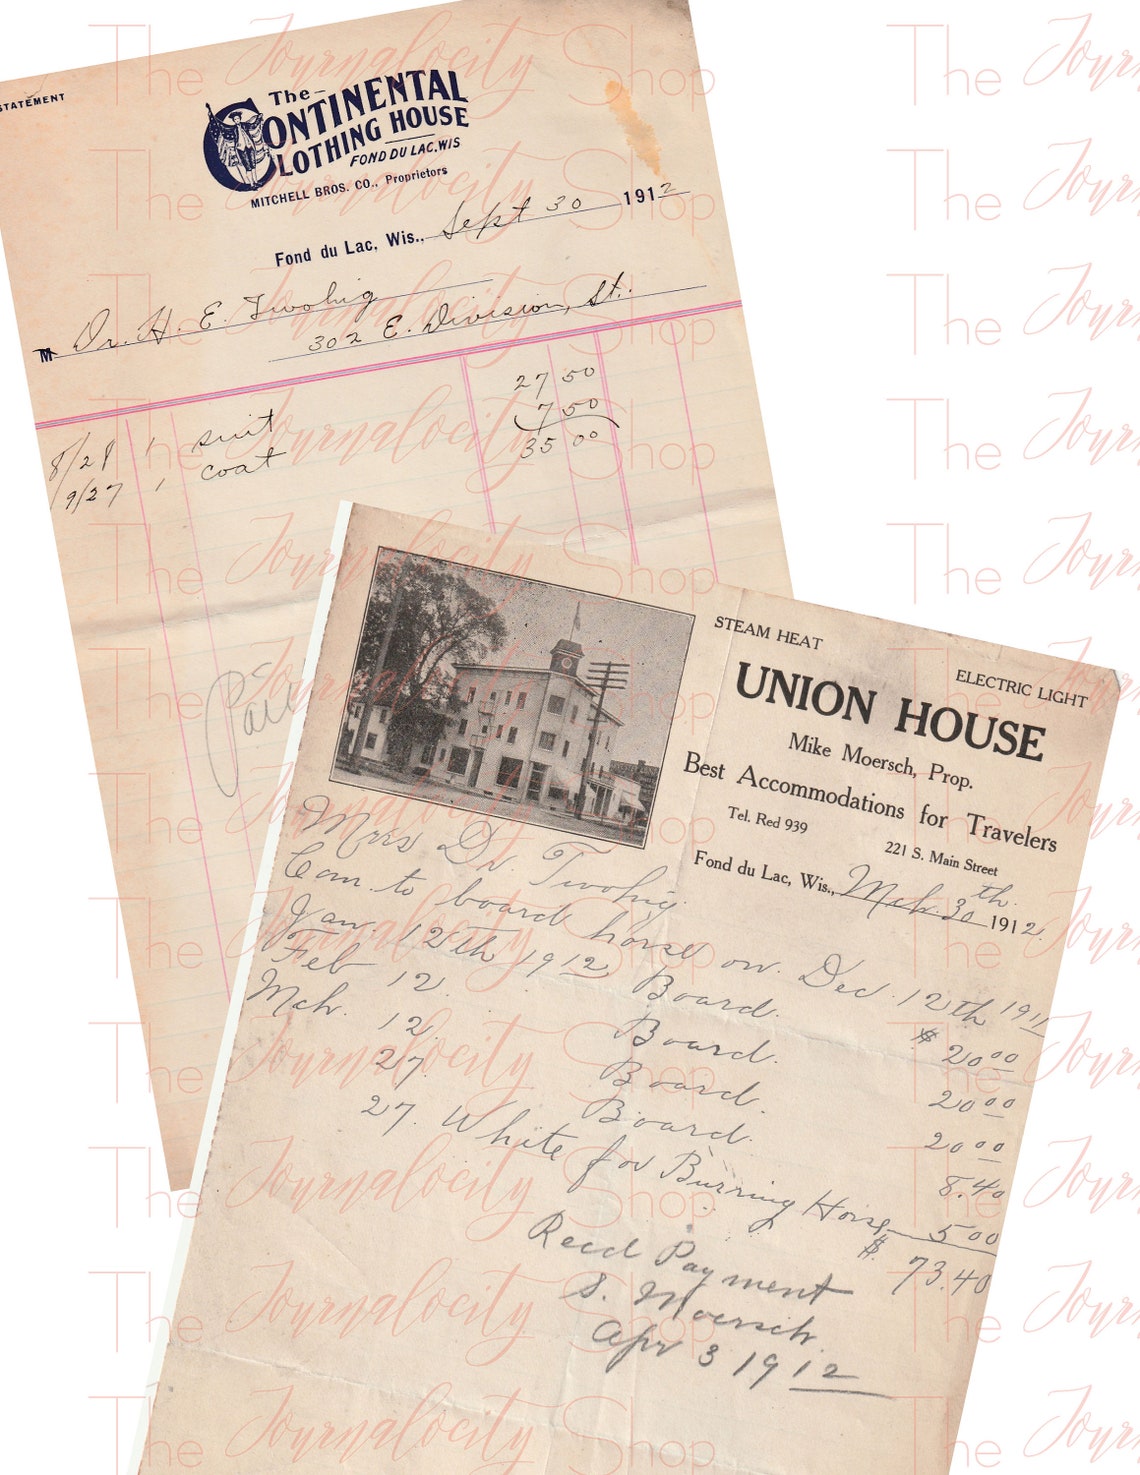 STATEMENT
The
CONTINENTAL
CLOTHING HOUSE
FOND DU LAC, WIS
MITCHELL BROS. CO., Proprietors
Fond du Lac, Wis., Sept 30 1912
M Dr. H. E. Twohig
302 E. Division, St.
8/28 1 suit 27 50
9/27 1 coat 7 50
35 00
Paid
STEAM HEAT
ELECTRIC LIGHT
UNION HOUSE
Mike Moersch, Prop.
Best Accommodations for Travelers
Tel. Red 939
221 S. Main Street
Fond du Lac, Wis., Mch. 30th. 1912.
Mrs Dr. Twohig.
Com. to board horse on. Dec. 12th 1911
Jan. 12th 1912 Board. $ 20 00
Feb 12. Board. 20 00
Mch. 12. Board. 20 00
27. Board. 8.40
27. White for Burring Horse 5 00
$ 73.40
Recd Payment
S. Moersch.
Apr 3 1912
The Journalocity Shop